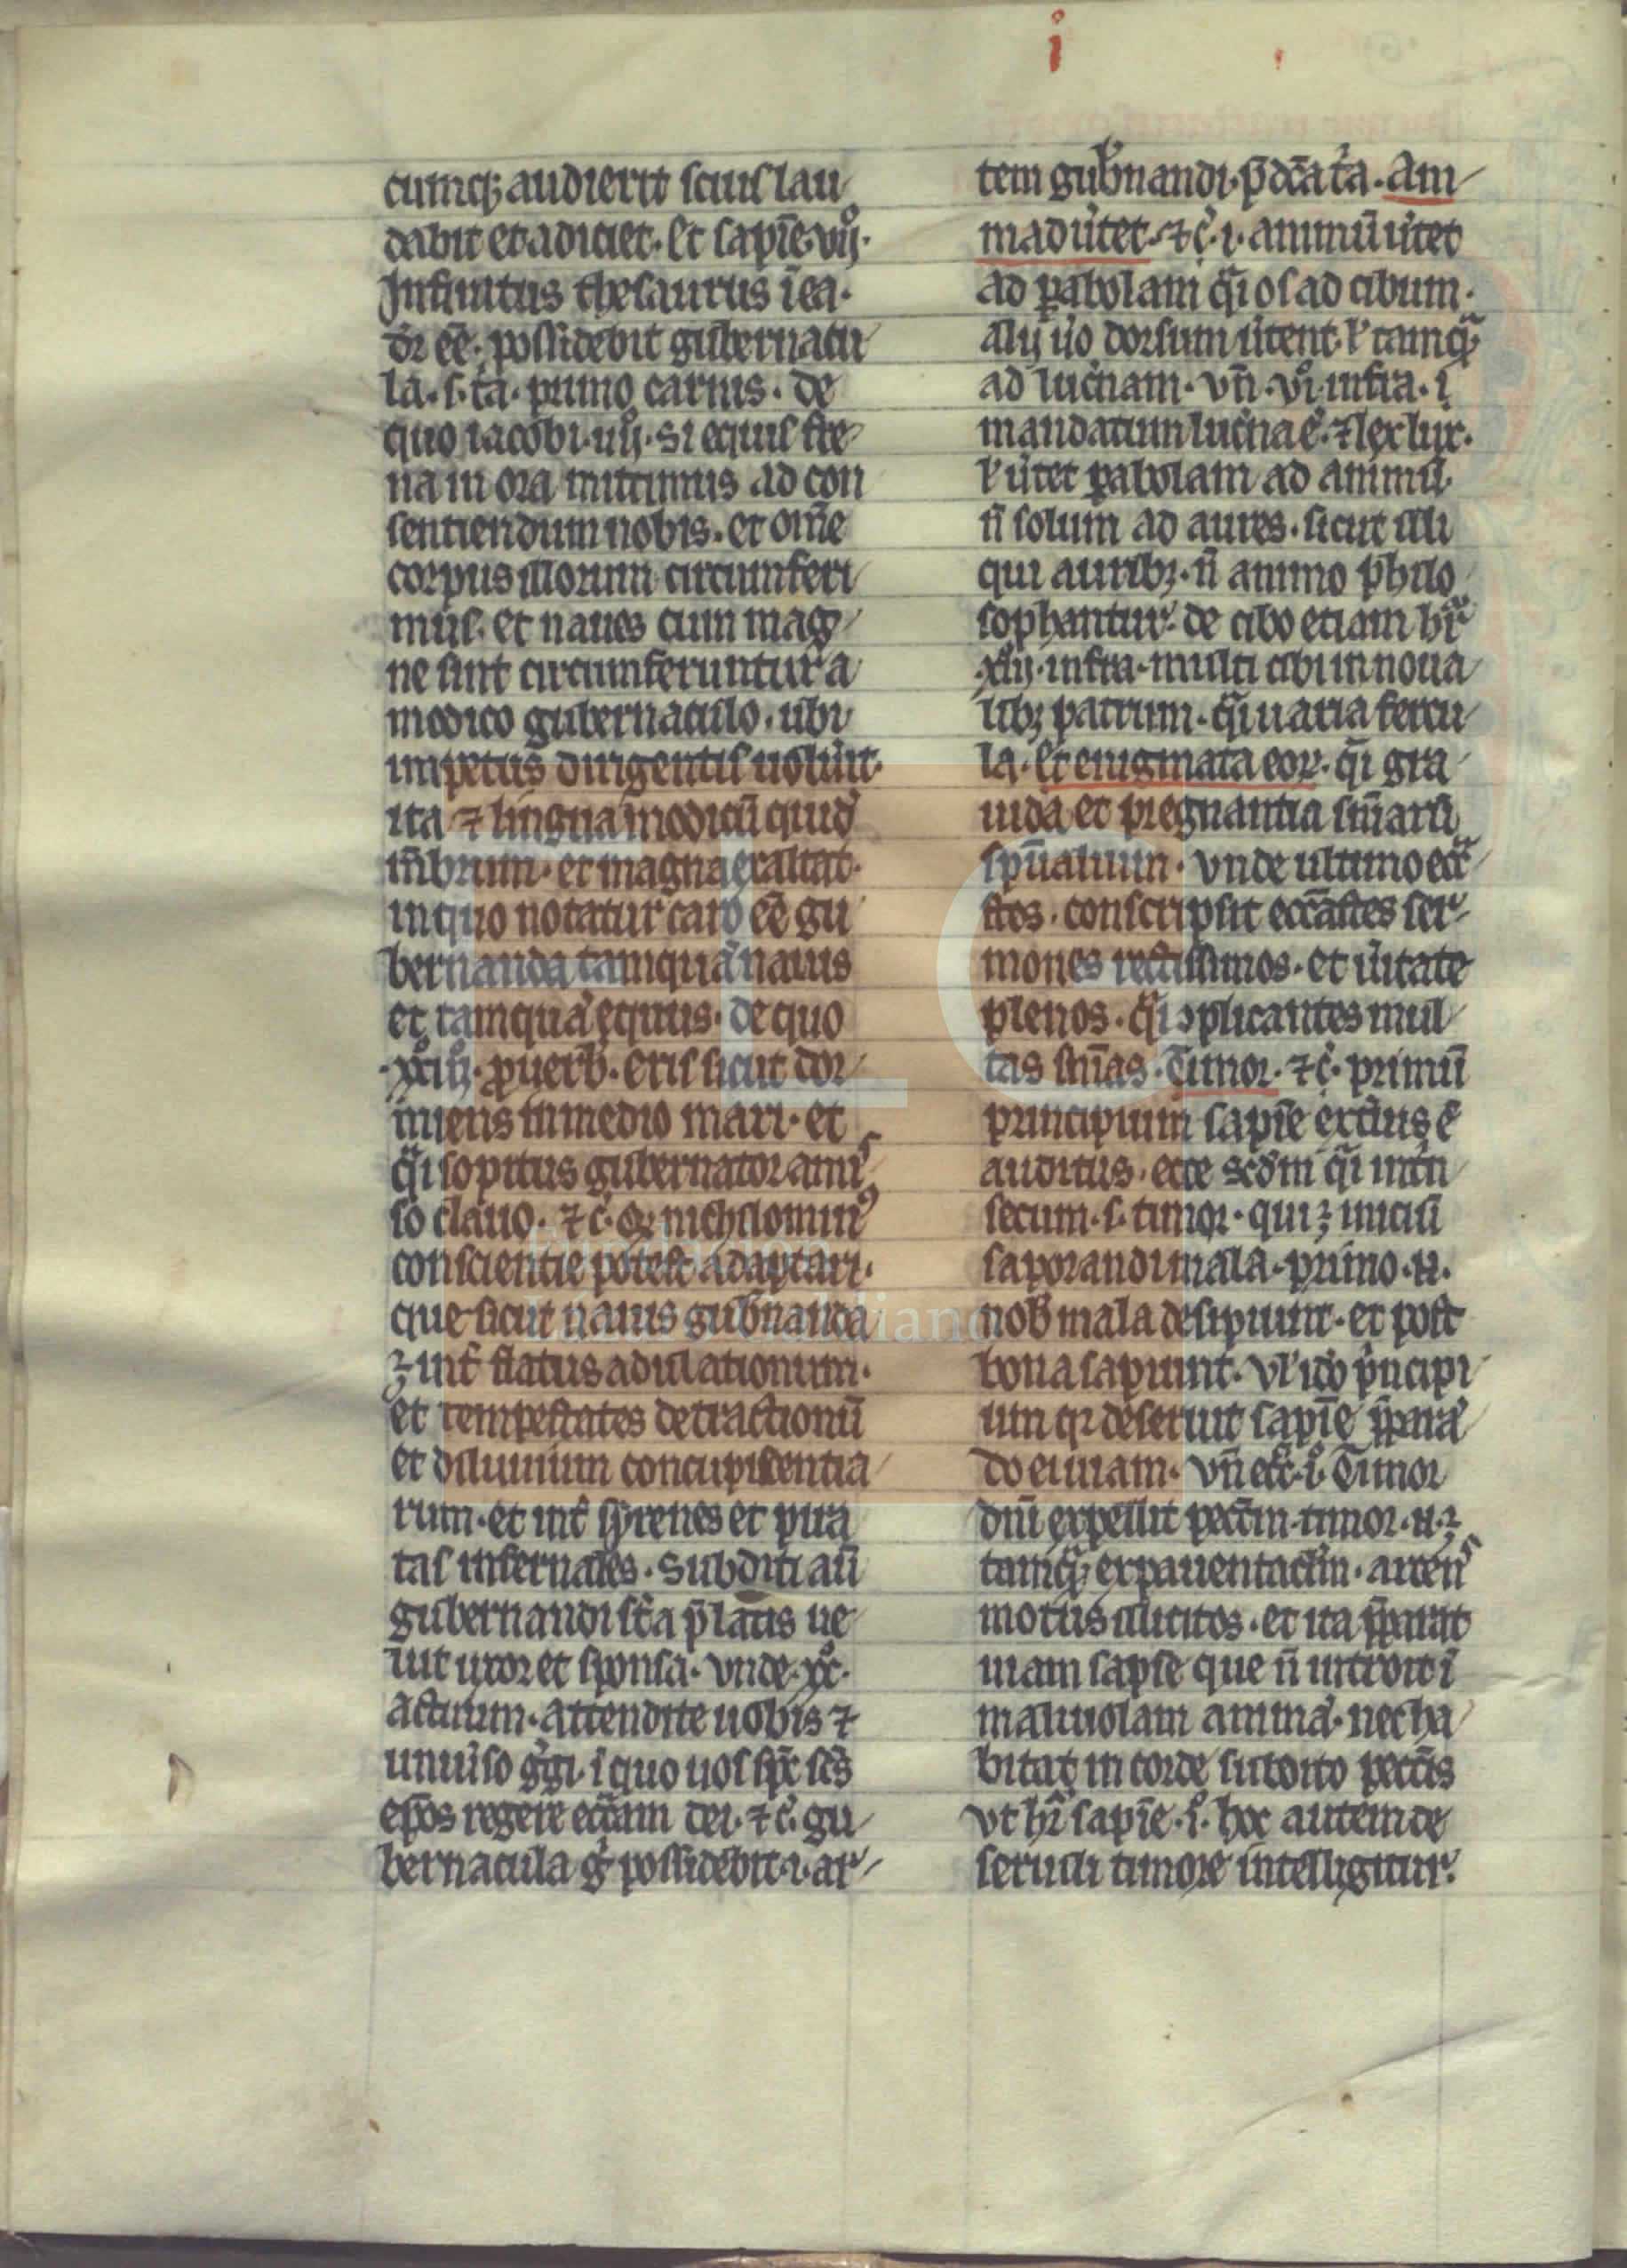 i
cumqꝫ audierit scius lau
dabit et adiciet. Et sapīe. vijͦ.
Infinitus thesaurus ī ea.
dr̄ eē. possidebit gubernacu
la. s. t̄a. primo carnis. de
quo iacobi. iijͦ. Si equis fre
na in ora mittimus ad con
sentiendum nobis. et om̄e
corpus illorum circumferi
mus. et naues cum mag
ne sint circumferuntur a
modico gubernaculo. ubi
impetus dirigentis uolu̾it.
ita ⁊ lingua modicū quid̾
m̄brum. et magna exaltat.
in quo notatur caro eē gu
bernanda tamquā nauis
et tamquā equus. de quo
.xxiijͦ. ꝓuerb̄. eris sicut dor
miens in medio mari. et
q̄i sopitus gubernator amis
so clauo. ⁊ c̾. Qꝛ nichilomin᾿
conscientie potest adaptari.
que sicut nauis gub̾nanda
ꝫ int̾ flatus adulationum.
et tempestates detractionū
et diluuium concupiscentia
rum. et int̾ syrenes et pira
tas infernales. Subditi aū
gubernandi sūt a p̄latis ue
lut uxor et sponsa. Vnde. xxͦ.
actuum. attendite uobis ⁊
uniu̾so g̾gi. ī quo uos sp̄c sc̄s
ep̄os regere eccl̄am dei. ⁊ c̾. gu
bernacula g̾ possidebit. i. ar
tem gub̾nandi. p̄dc̄a t̄a. Ani
madu̾tet. ⁊ c̾. i. animū u̾tet
ad ꝑabolam q̄i os ad cibum.
alij u̾o dorsum u̾tent. ł tamqꝫ
ad luc̾nam. vn̄. viͦ. infra. i
mandatum luc̾na ē. ⁊ lex lux.
ł u̾tet ꝑabolam ad animū.
n̄ solum ad aures. sicut illi
qui auribꝫ. n̄ animo philo
sophantur. de cibo etiam hr̄
.xiijͦ. infra. multi cibi in noua
libꝫ patrum. q̄i uaria fercu
la. Et enigmata eorꝫ. q̄i gra
uida et pregnantia sn̄iarū
sp̄ualium. vnde ultimo ecc̄a
stes. conscripsit ecc̄astes ser
mones rectissimos. et u̾itate
plenos. q̄i ꝯplicantes mul
tas sn̄ias. Timor. ⁊ c̾. primū
principium sapīe ext̾ius ē
auditus. ecce sc̄dm q̄i int̾n
secum. s. timor. qui ꝫ inicium
saporandi mala. primo. n̄.
nob̾ mala desipiunt. et post
bona sapiunt. Vł id̾o p̾ncipi
um qꝛ deseruit sapīe p̄paran
do ei uiam. vn̄ eccī. iͦ. Timor
dn̄i expellit pecc̄m. timor. n̄. ꝫ
tamqꝫ expauentaculum. arcens
motus illicitos. et ita p̄parat
uiam sapīe que n̄ introit ī
maliuolam animā. nec ha
bitat in corde subdito pecc̄is
vt hr̄ sapīe. iͦ. hoc autem de
seruili timore intelligitur.